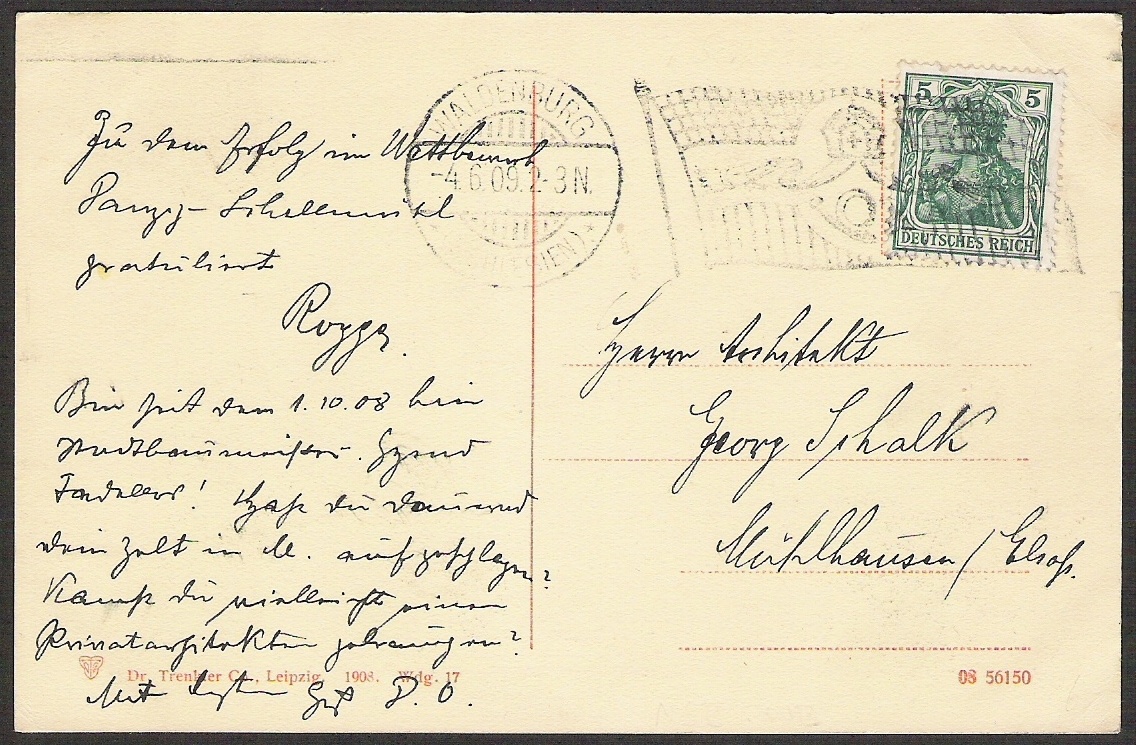 Zu dem Erfolg im Wettbewerb
Danzig-Schellmühl
gratuliert
Rogge.
Bin seit dem 1.10.08 hier
Stadtbaumeister.
Hast du dauernd
dein Zelt in M. aufgeschlagen?
Kannst du vielleicht einen
Privatarchitekten gebrauchen?
Mit bestem Gruß D. O.
WALDENBURG
-4.6.09.2-3N.
(SCHLESIEN)
5 5
DEUTSCHES REICH
Herrn Architekt
Georg Schalk
Mühlhausen / Elsaß.
Dr. Trenkler Co., Leipzig. 1908. Wdg. 17
08 56150